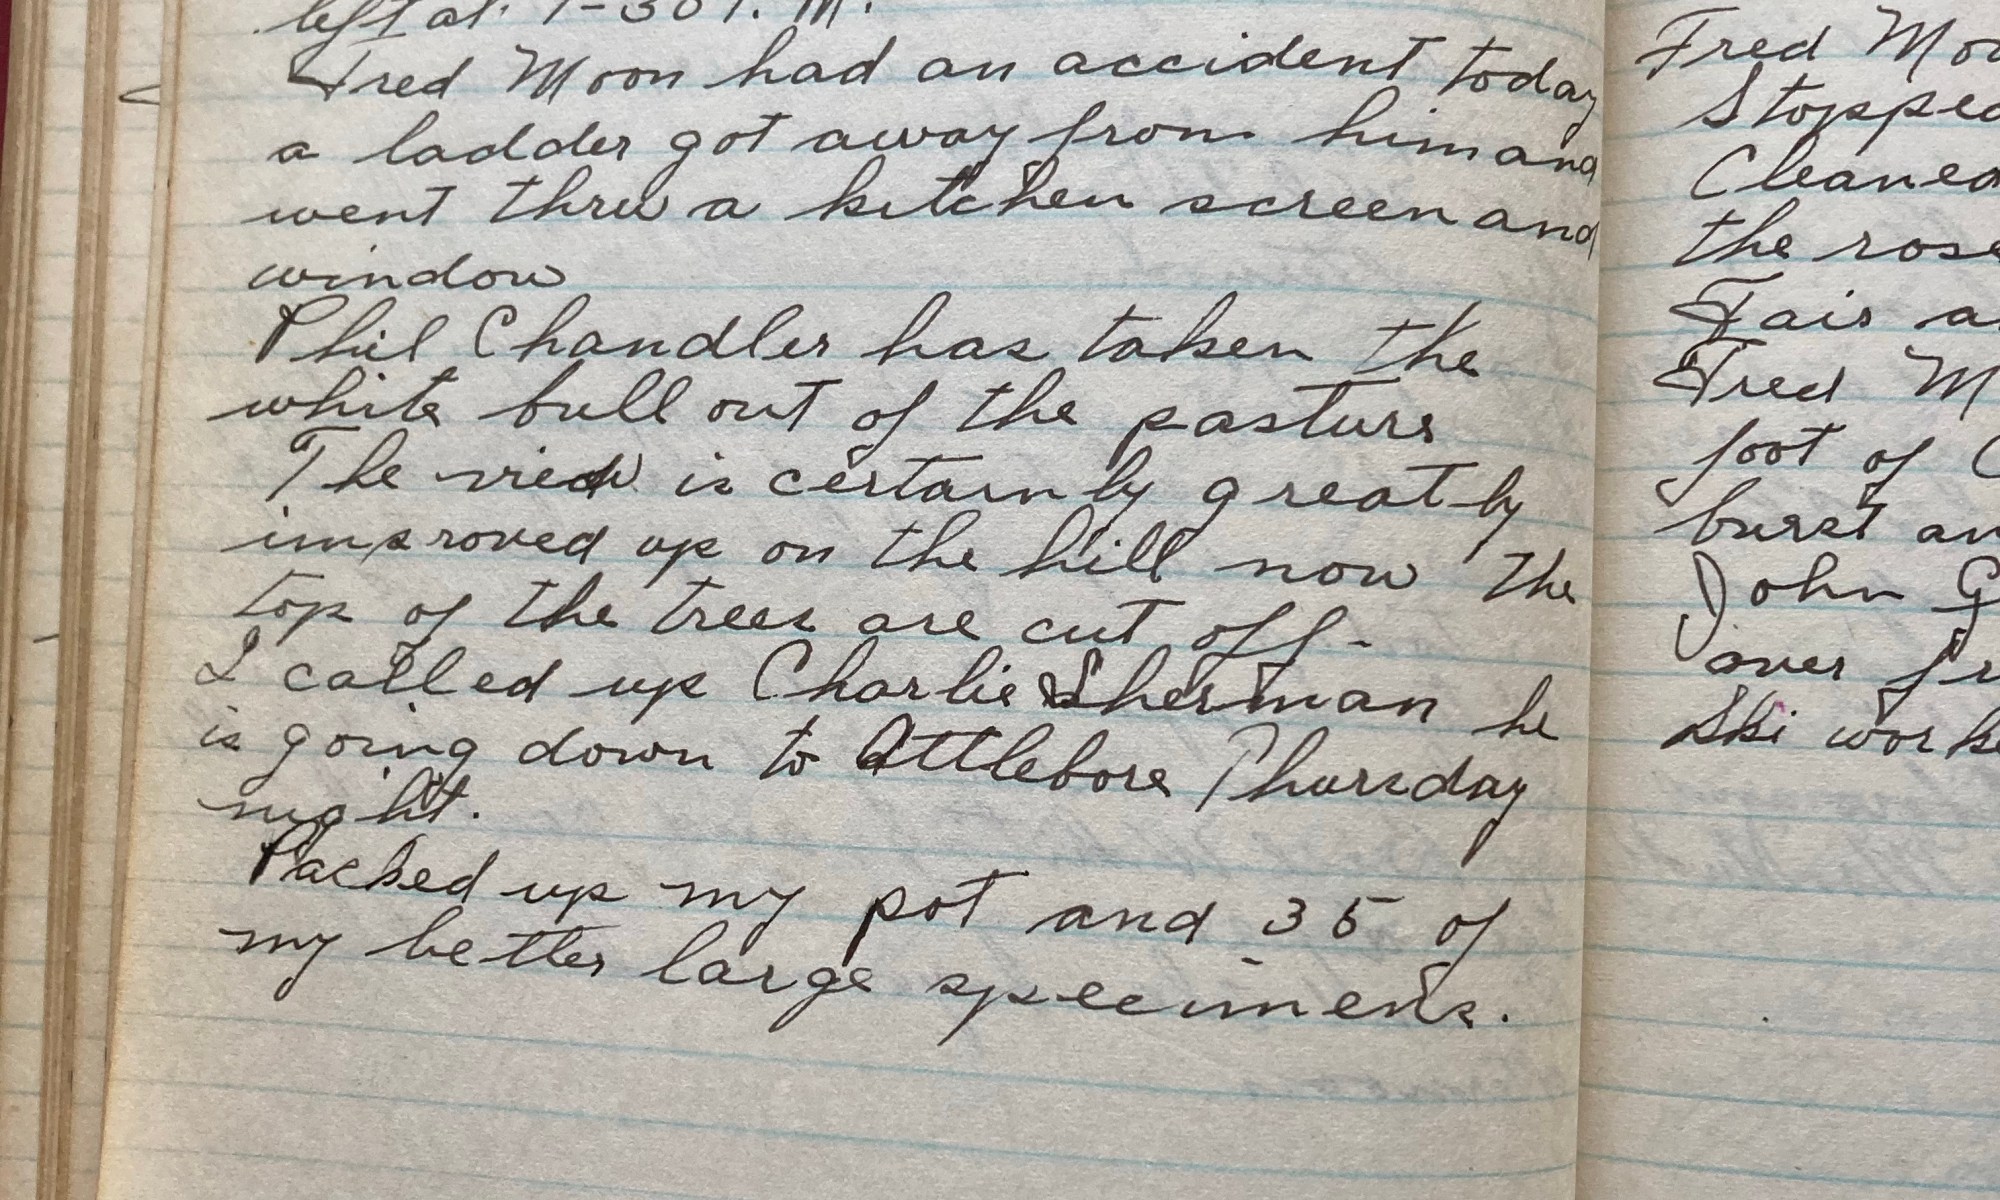 left at 7-30 P. M.
Fred Moon had an accident today
a ladder got away from him and
went thru a kitchen screen and
window
Phil Chandler has taken the
white bull out of the pasture
The view is certainly greatly
improved up on the hill now the
top of the trees are cut off-
I called up Charlie Sherman he
is going down to Attlebore Thursday
night.
Packed up my pot and 35 of
my better large specimens.
Fred Moo
Stopped
Cleaned
the rose
Fair a
Fred M
foot of C
burst an
John G
over fr
Ski worke